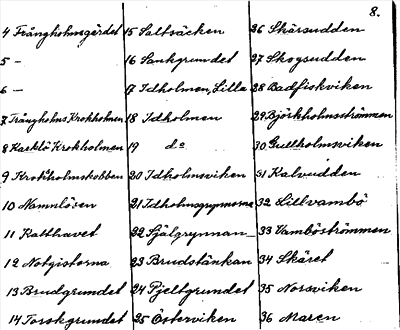 8.
4 Trångholmsgärdet
5 —
6 —
7 Trångholms Krokholmen
8 Karklö Krokholmen
9 Krokholmskobben
10 Namnlösen
11 Katthavet
12 Notgistorna
13 Brudgrundet
14 Torskgrundet
15 Saltsäcken
16 Sankgrundet
17 Idholmen, Lilla
18 Idholmen
19 do
20 Idholmsviken
21 Idholmsgrynnorna
22 Själgrynnan
23 Brudstänkan
24 Tjeltgrundet
25 Österviken
26 Skärsudden
27 Skogsudden
28 Badfiskviken
29 Björkholmsströmmen
30 Gullholmsviken
31 Kalvudden
32 Lillvambö
33 Vamböströmmen
34 Skäret
35 Norsviken
36 Maren